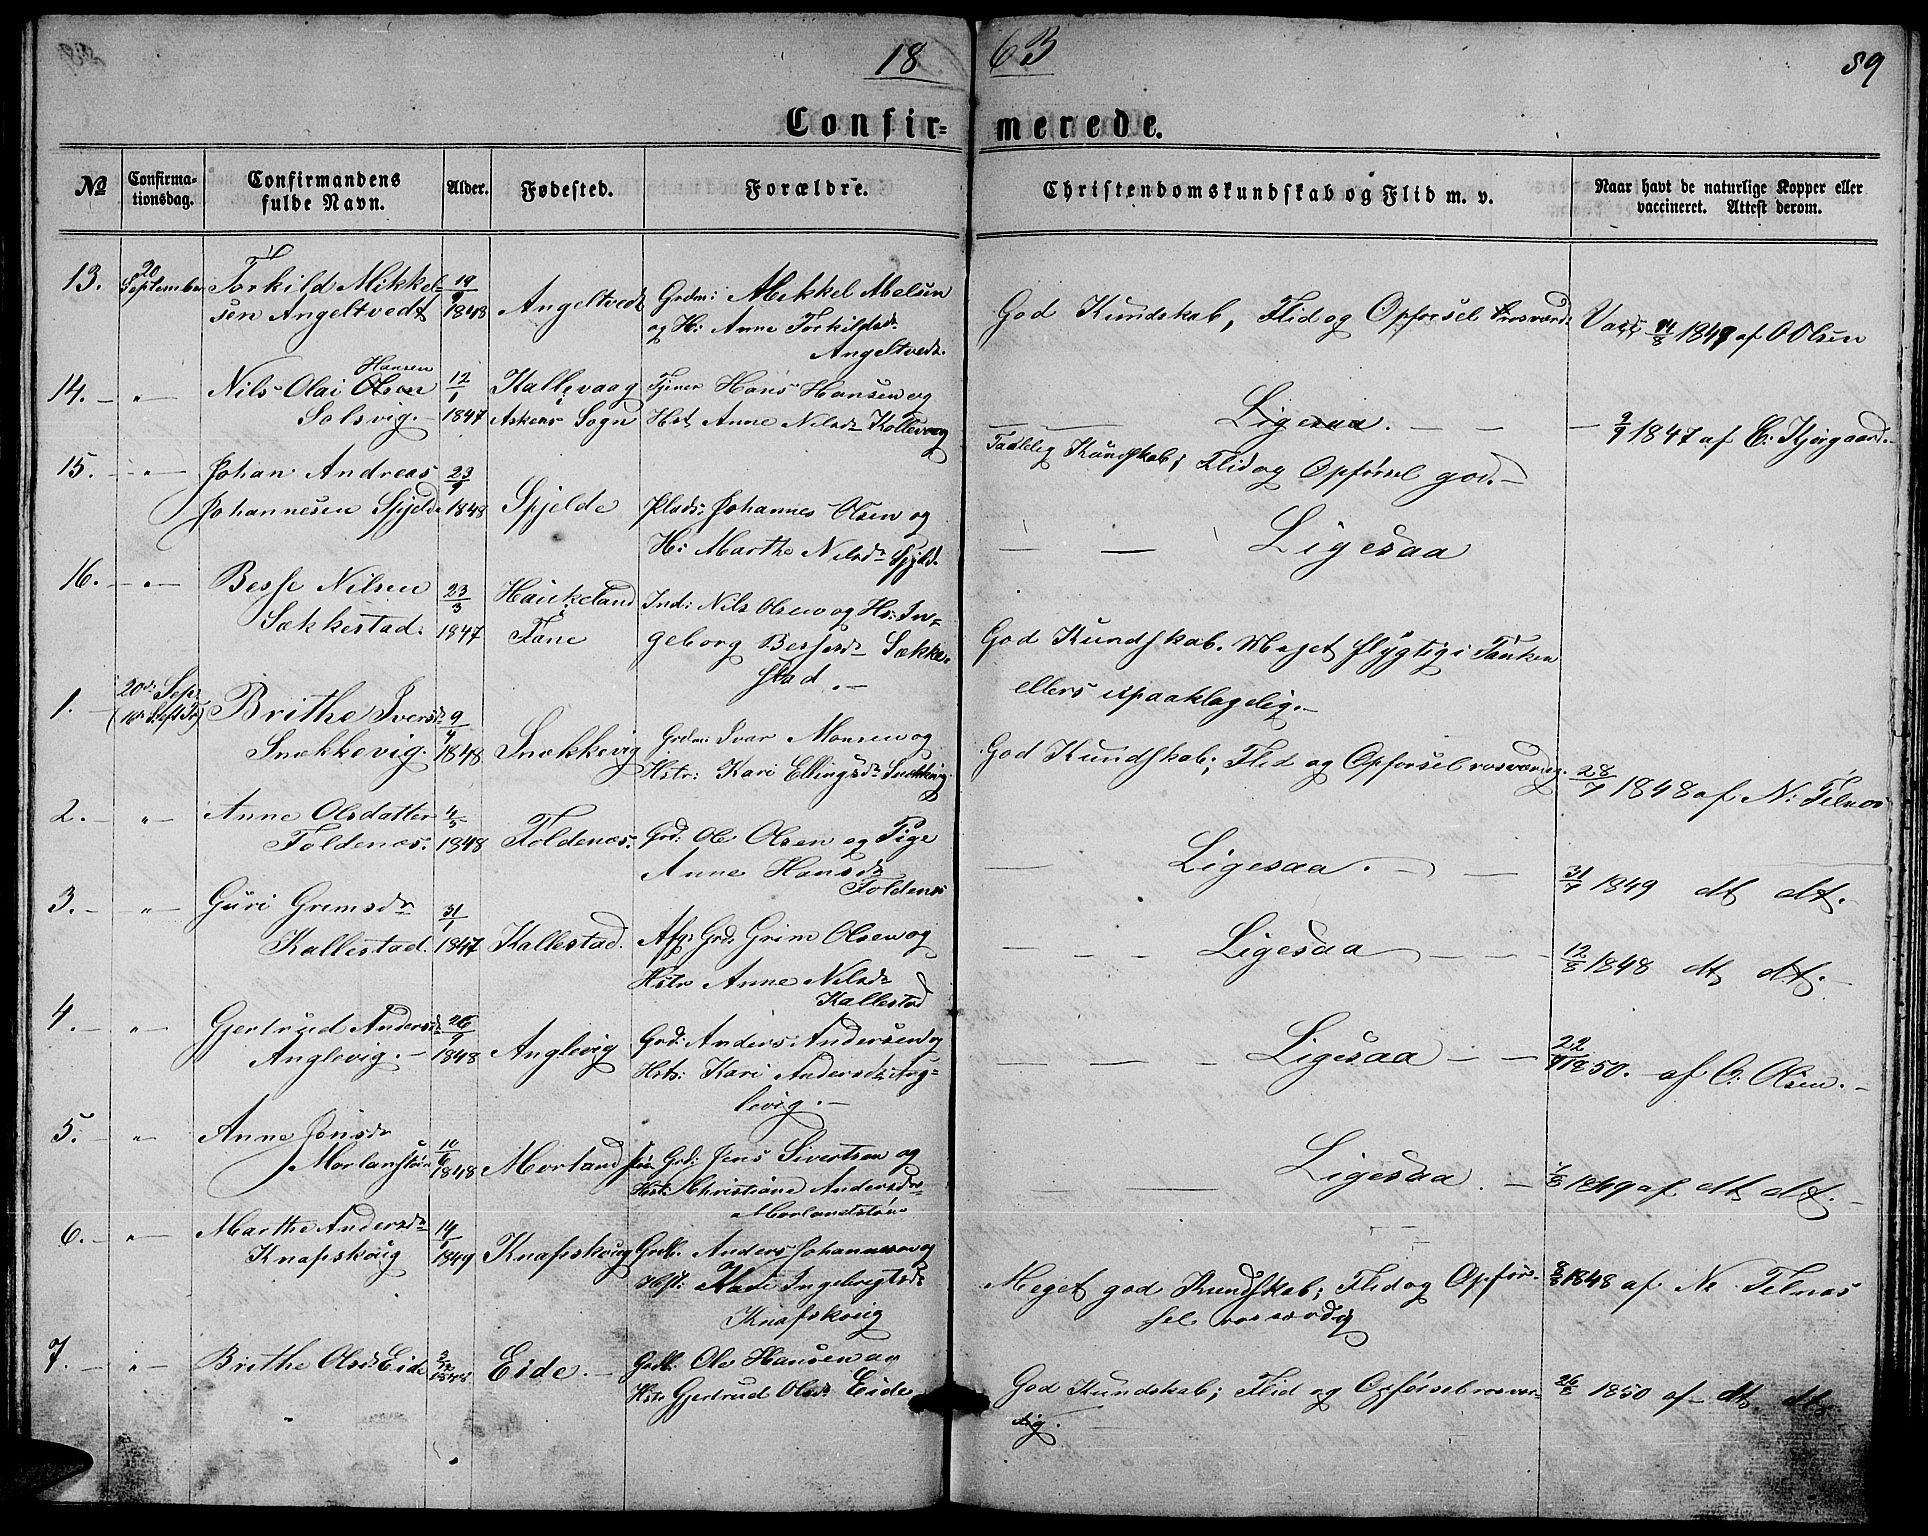 18 63
89
Confir- merede.
No
Confirma-
tionsdag.
Confirmandens
fulde Navn.
Alder.
Fødested.
Forældre.
Christendomskundskab og Flid m. v.
Naar havt de naturlige Kopper eller
vaccineret. Attest derom.
13. 20 September Torkild Mikkel-
sen Angeltvedt 1848 Angeltvedt
Grdm: Mikkel Melsen
og H: Anne Torkildsdr
Angeltvedt
God Kundskab, Flid og Opførsel rosværd
Vacc 14/8 1849 af O Olsen
14. – " – Nils Olai Olsen Hansen
Solsvig. – 12/1 1847
Kallevaag i
Askens Sogn
Tjener Hans Hansen og
Hst Anne Nilsdr Kollevaag
Ligesaa.
9/9 1847 af E. Kjergaard.
15. – " – Johan Andreas
Johannesen Spjelde 1848
Spjelde
Plads: Johannes Olsen og
H: Marthe Nilsdr Spjeld.
Taalelig Kundskab; Flid og Opførsel god. –
Ligesaa
16. – " – Besse Nilsen
Sækkestad. 23/3 1847
Haukeland i
Fane
Ind: Nils Olsen og Hs: In-
geborg Bessesdr Sække-
stad. –
God Kundskab. Meget flygtig i Tanken
ellers upaaklagelig. –
1. 20de Sep.
(16de S. eft Tr) Brithe Iversdr
Snekkevig. 9/4 1848 Snekkevig
Grdm: Ivar Monsen og
Hstr: Kari Ellingsdr Snekkevig.
God Kundskab; Flid og Opførsel rosværdig.
28/7 1848 af N: Telnes
2. – " – Anne Olsdatter
Foldenæs. 4/5 1848 Foldenæs.
Grd: Ole Olsen og Pige
Anne Hansdr
Foldenæs
Ligesaa. –
31/7 1849 dt dt. –
3. – " – Guri Gremsdr
Kallestad. 31/1 1847 Kallestad.
Afg. Grd: Grim Olsen og
Hstr Anne Nilsdr
Kallestad
Ligesaa
12/8 1848 dt dt. –
4. – " – Gjertrud Andersdr
Anglevig. – 26/9 1848 Anglevig
Grd: Anders Andersen og
Hstr: Kari Andersdr Ang-
levig. –
Ligesaa
22 1850. – af O: Olsen. –
5. – " – Anne Jensdr
Morlanstøn 10/6 1848 Morland
Grd: Jens Sivertsen og
Hst: Christiane Andersdr
Morlandstøn
Ligesaa.
1849 af dt dt. –
6. – " – Marthe Andersdr
Knapskoug 14/1 1849 Knapskoug
Grdb. Anders Johannesen og
Hst: Kari Ingebrigtsdr
Knapskoug
Meget god Kundskab; Flid og Opfør-
sel rosværdig
8/8 1848 af N. Telnæs
7. – " – Brithe Olsdr Eide 1848 Eide. –
Grdb: Ole Hansen og
Hstr Gjertrud Olsdr Eide
God Kundskab; Flid og Opførsel rosvær-
dig.
26/8 1850 af dt. dt.